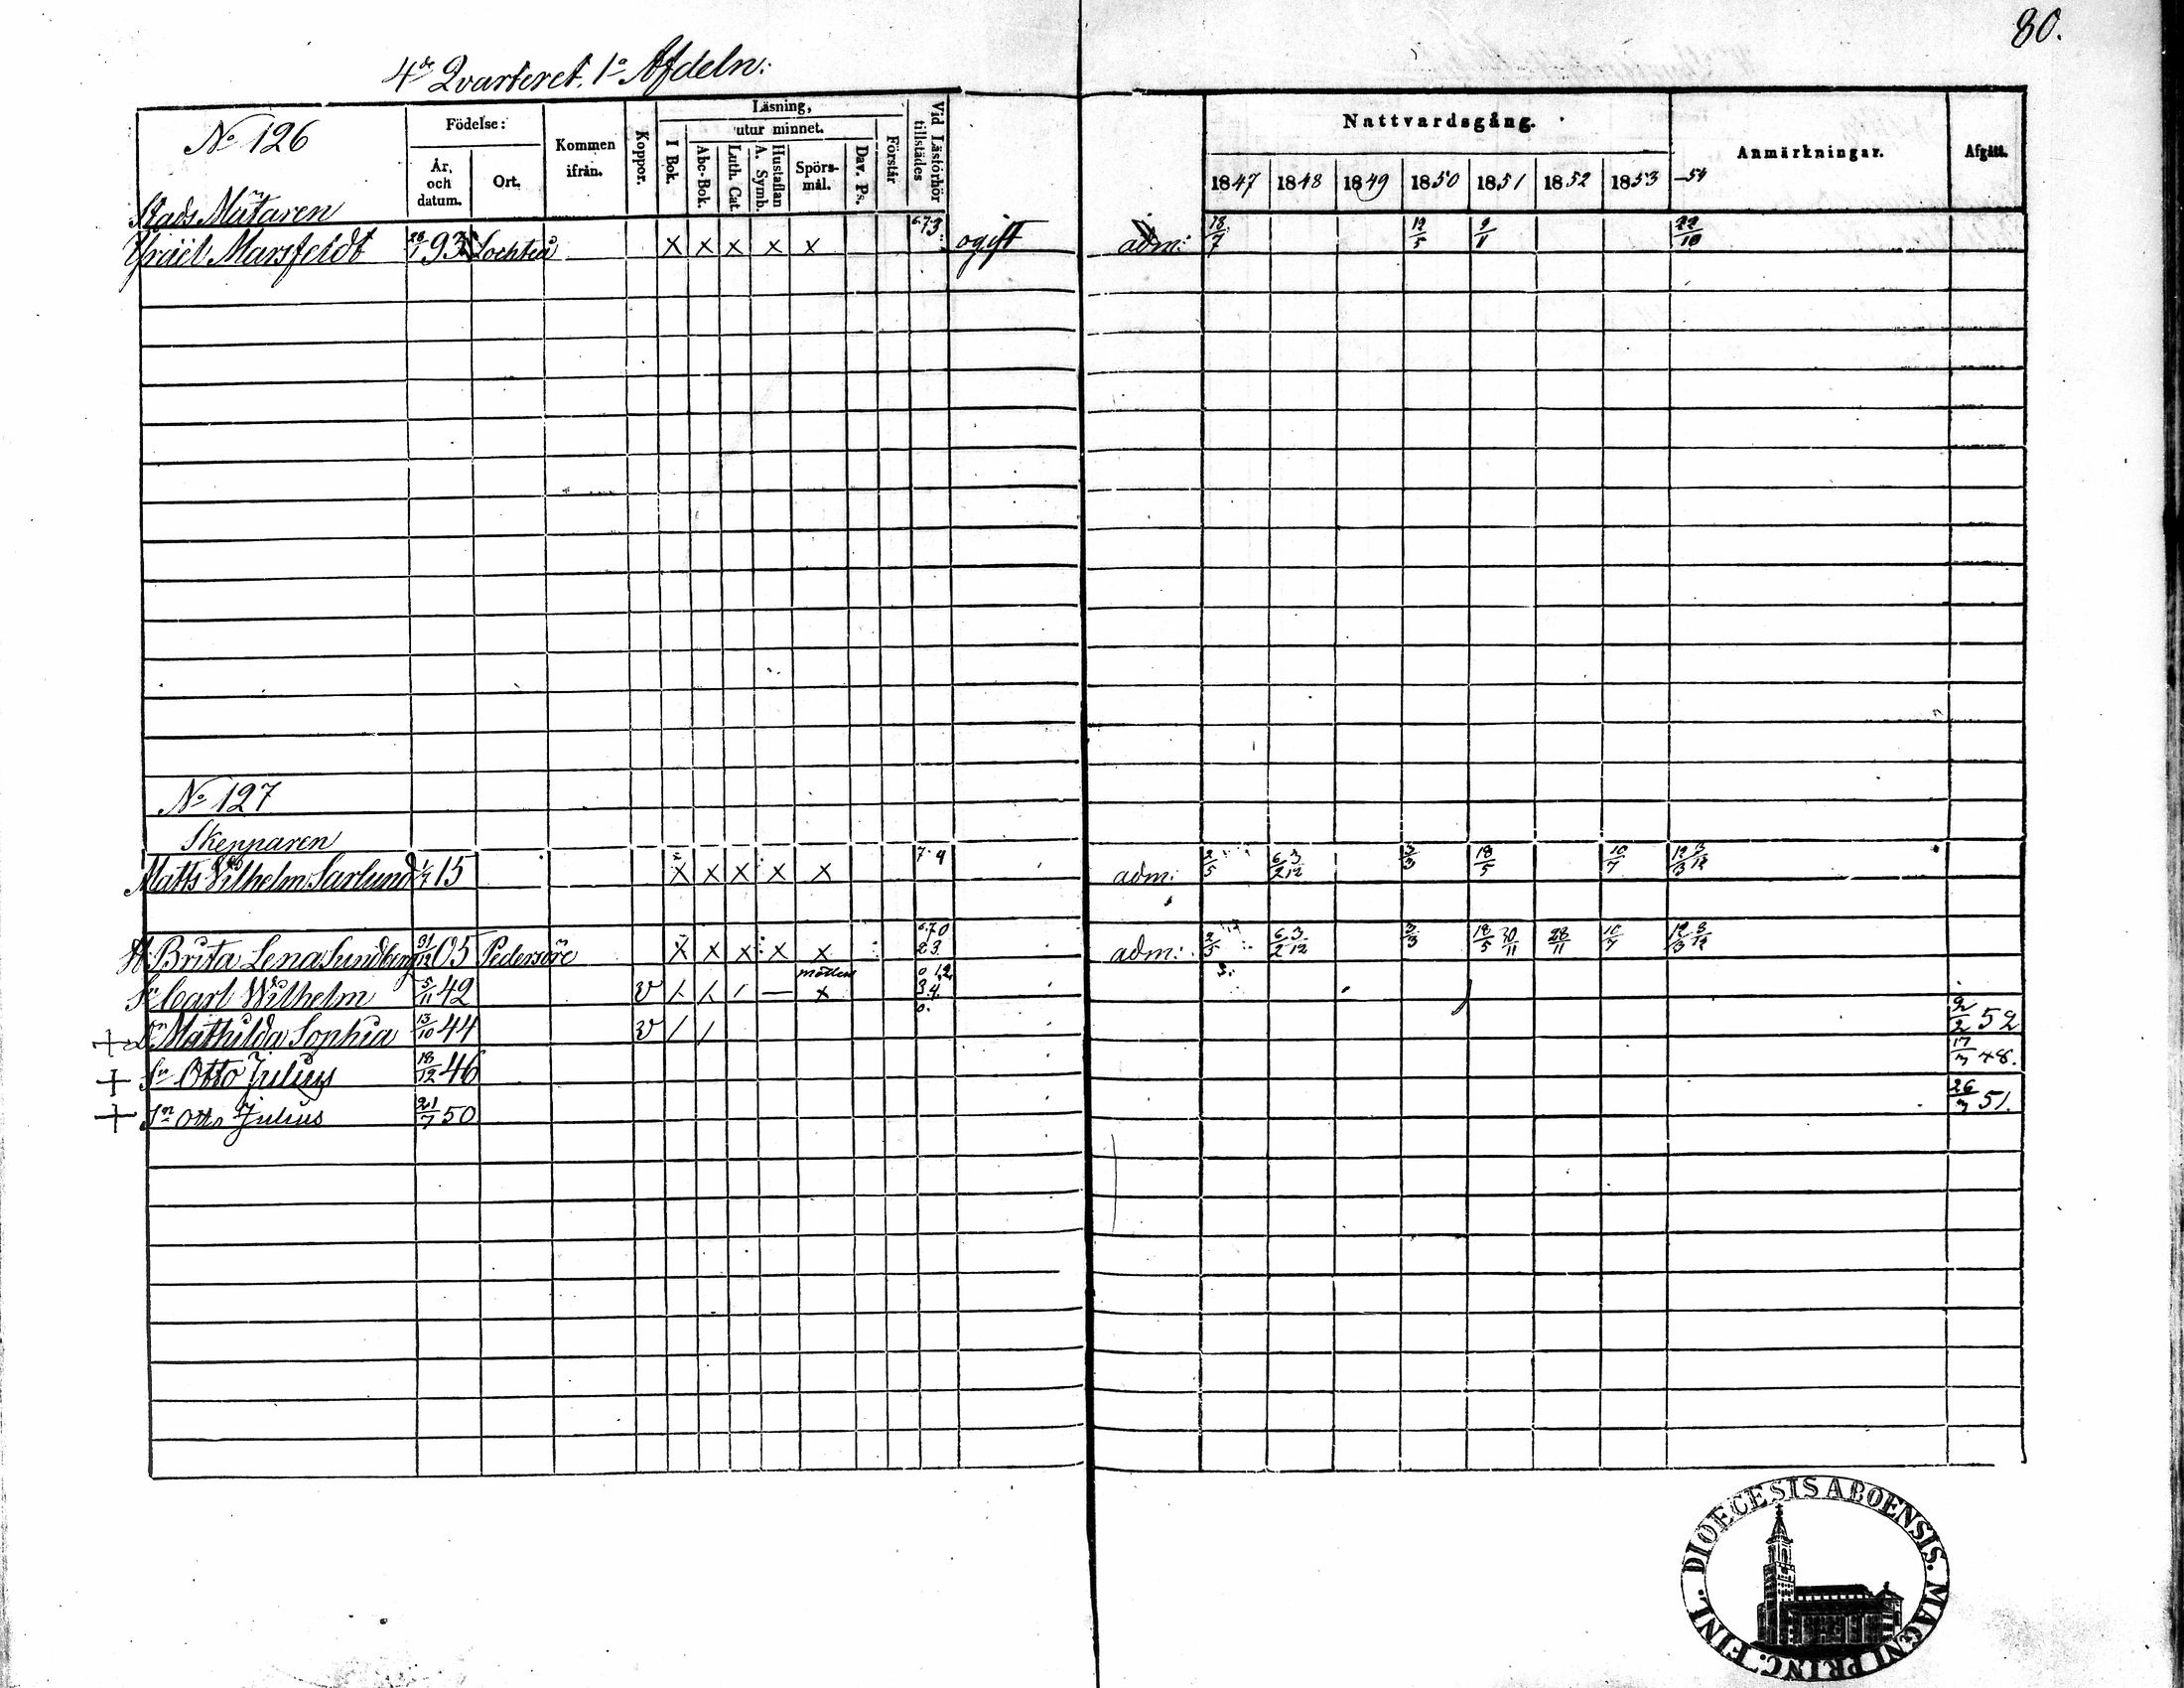 80.
4de Qvarteret. 1a Afdeln:
No 126
Födelse:
År, och datum.
Ort.
Kommen ifrån.
Koppor.
Läsning,
I Bok.
utur minnet.
Abc-Bok.
Luth. Cat.
A. Symb.
Hustaflan
Spörsmål.
Dav. Ps.
Förstår
Vid Läsförhör tillstädes
Nattvardsgång.
1847 1848 1849 1850 1851 1852 1853 -54
Anmärkningar.
Afgått.
Stads Mätaren
Israël Marsfeldt 26/1 93 Lochteå X X X X X 6.7.3. ogift adm: 18/7 12/5 9/11 22/10
No 127
Skepparen
Matts Wilhelm Sarlund 1/7 15 X X X X X 7.9 adm: 2/5 6/2 3/12 3/3 18/5 10/7 12/3 3/12
H. Brita Lena Sundberg 31/12 05 Pedersöre X X X X X 6.7.0 2 3. adm: 2/5 6/2 3/12 3/3 18/5 30/11 28/11 10/7 12/3 3/12
Sn Carl Wilhelm 5/11 42 v — X 0 1.2. 3.4.
+ Dr Mathilda Sophia 13/10 44 v / / 0. 9/2 52
+ Sn Otto Julius 18/12 46 17/7 48.
+ Sn Otto Julius 21/7 50 26/3 51.
DIOECESIS ABOENSIS. MAGNI PRINC. FINL.